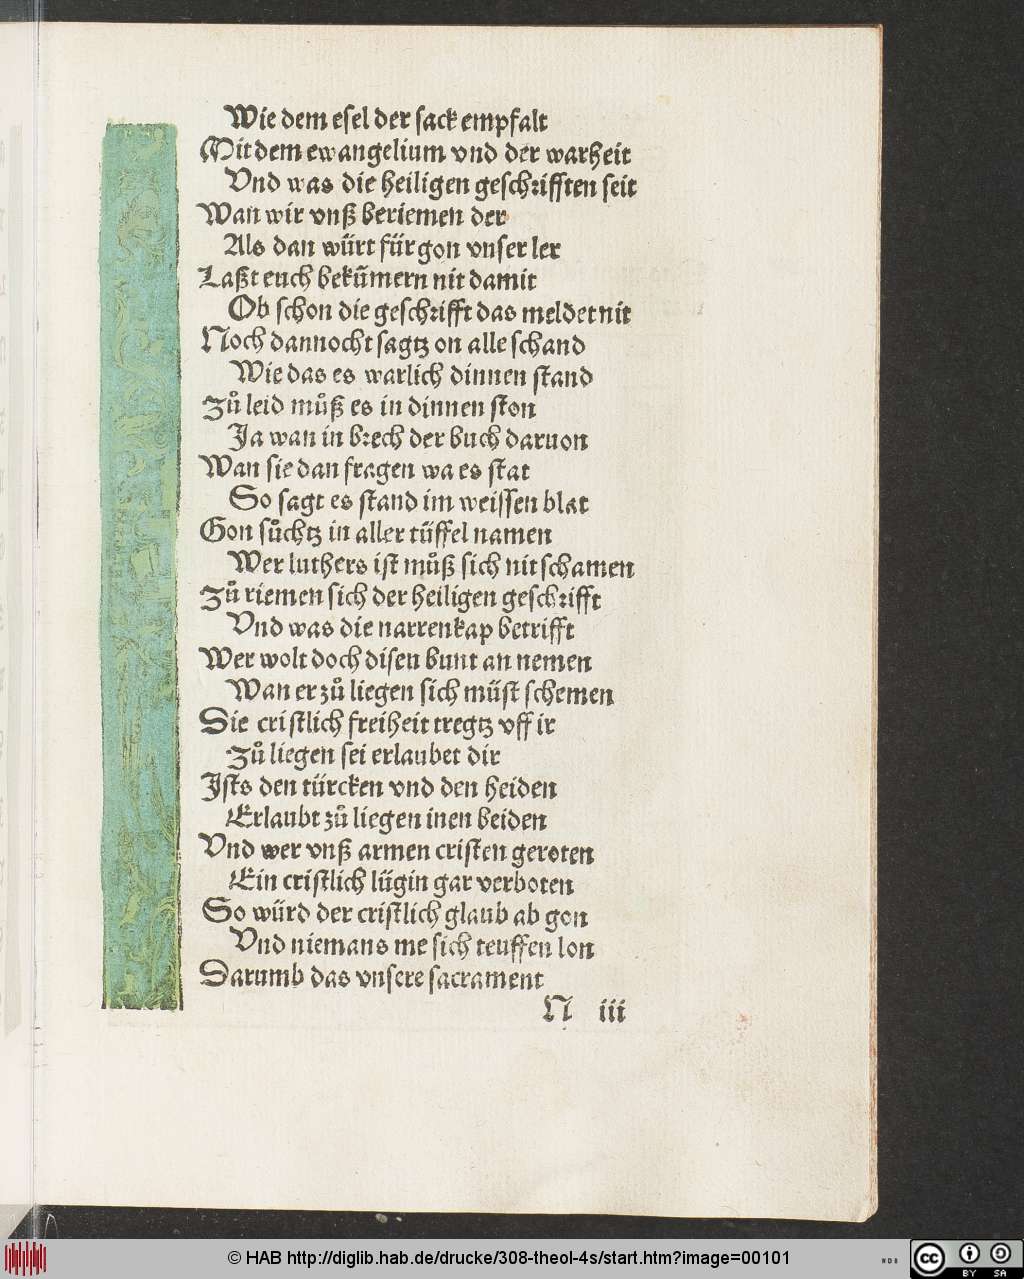 Wie dem esel der sack empfalt
Mit dem ewangelium vnd der warheit
Vnd was die heiligen geschrifften seit
Wan wir vnß beriemen der
Als dan würt für gon vnser ler
Laßt euch bekümern nit damit
Ob schon die geschrifft das meldet nit
Noch dannocht sagtz on alle schand
Wie das es warlich dinnen stand
Zů leid můß es in dinnen ston
Ja wan in brech der buch daruon
Wan sie dan fragen wa es stat
So sagt es stand im weissen blat
Gon sůchtz in aller tüffel namen
Wer luthers ist můß sich nit schamen
Zů riemen sich der heiligen geschrifft
Vnd was die narrenkap betrifft
Wer wolt doch disen bunt an nemen
Wan er zů liegen sich müst schemen
Die cristlich freiheit tregtz vff ir
Zů liegen sei erlaubet dir
Jsts den türcken vnd den heiden
Erlaubt zů liegen inen beiden
Vnd wer vnß armen cristen geroten
Ein cristlich lügin gar verboten
So würd der cristlich glaub ab gon
Vnd niemans me sich teuffen lon
Darumb das vnsere sacrament
N iii
© HAB http://diglib.hab.de/drucke/308-theol-4s/start.htm?image=00101
WDB
cc BY SA